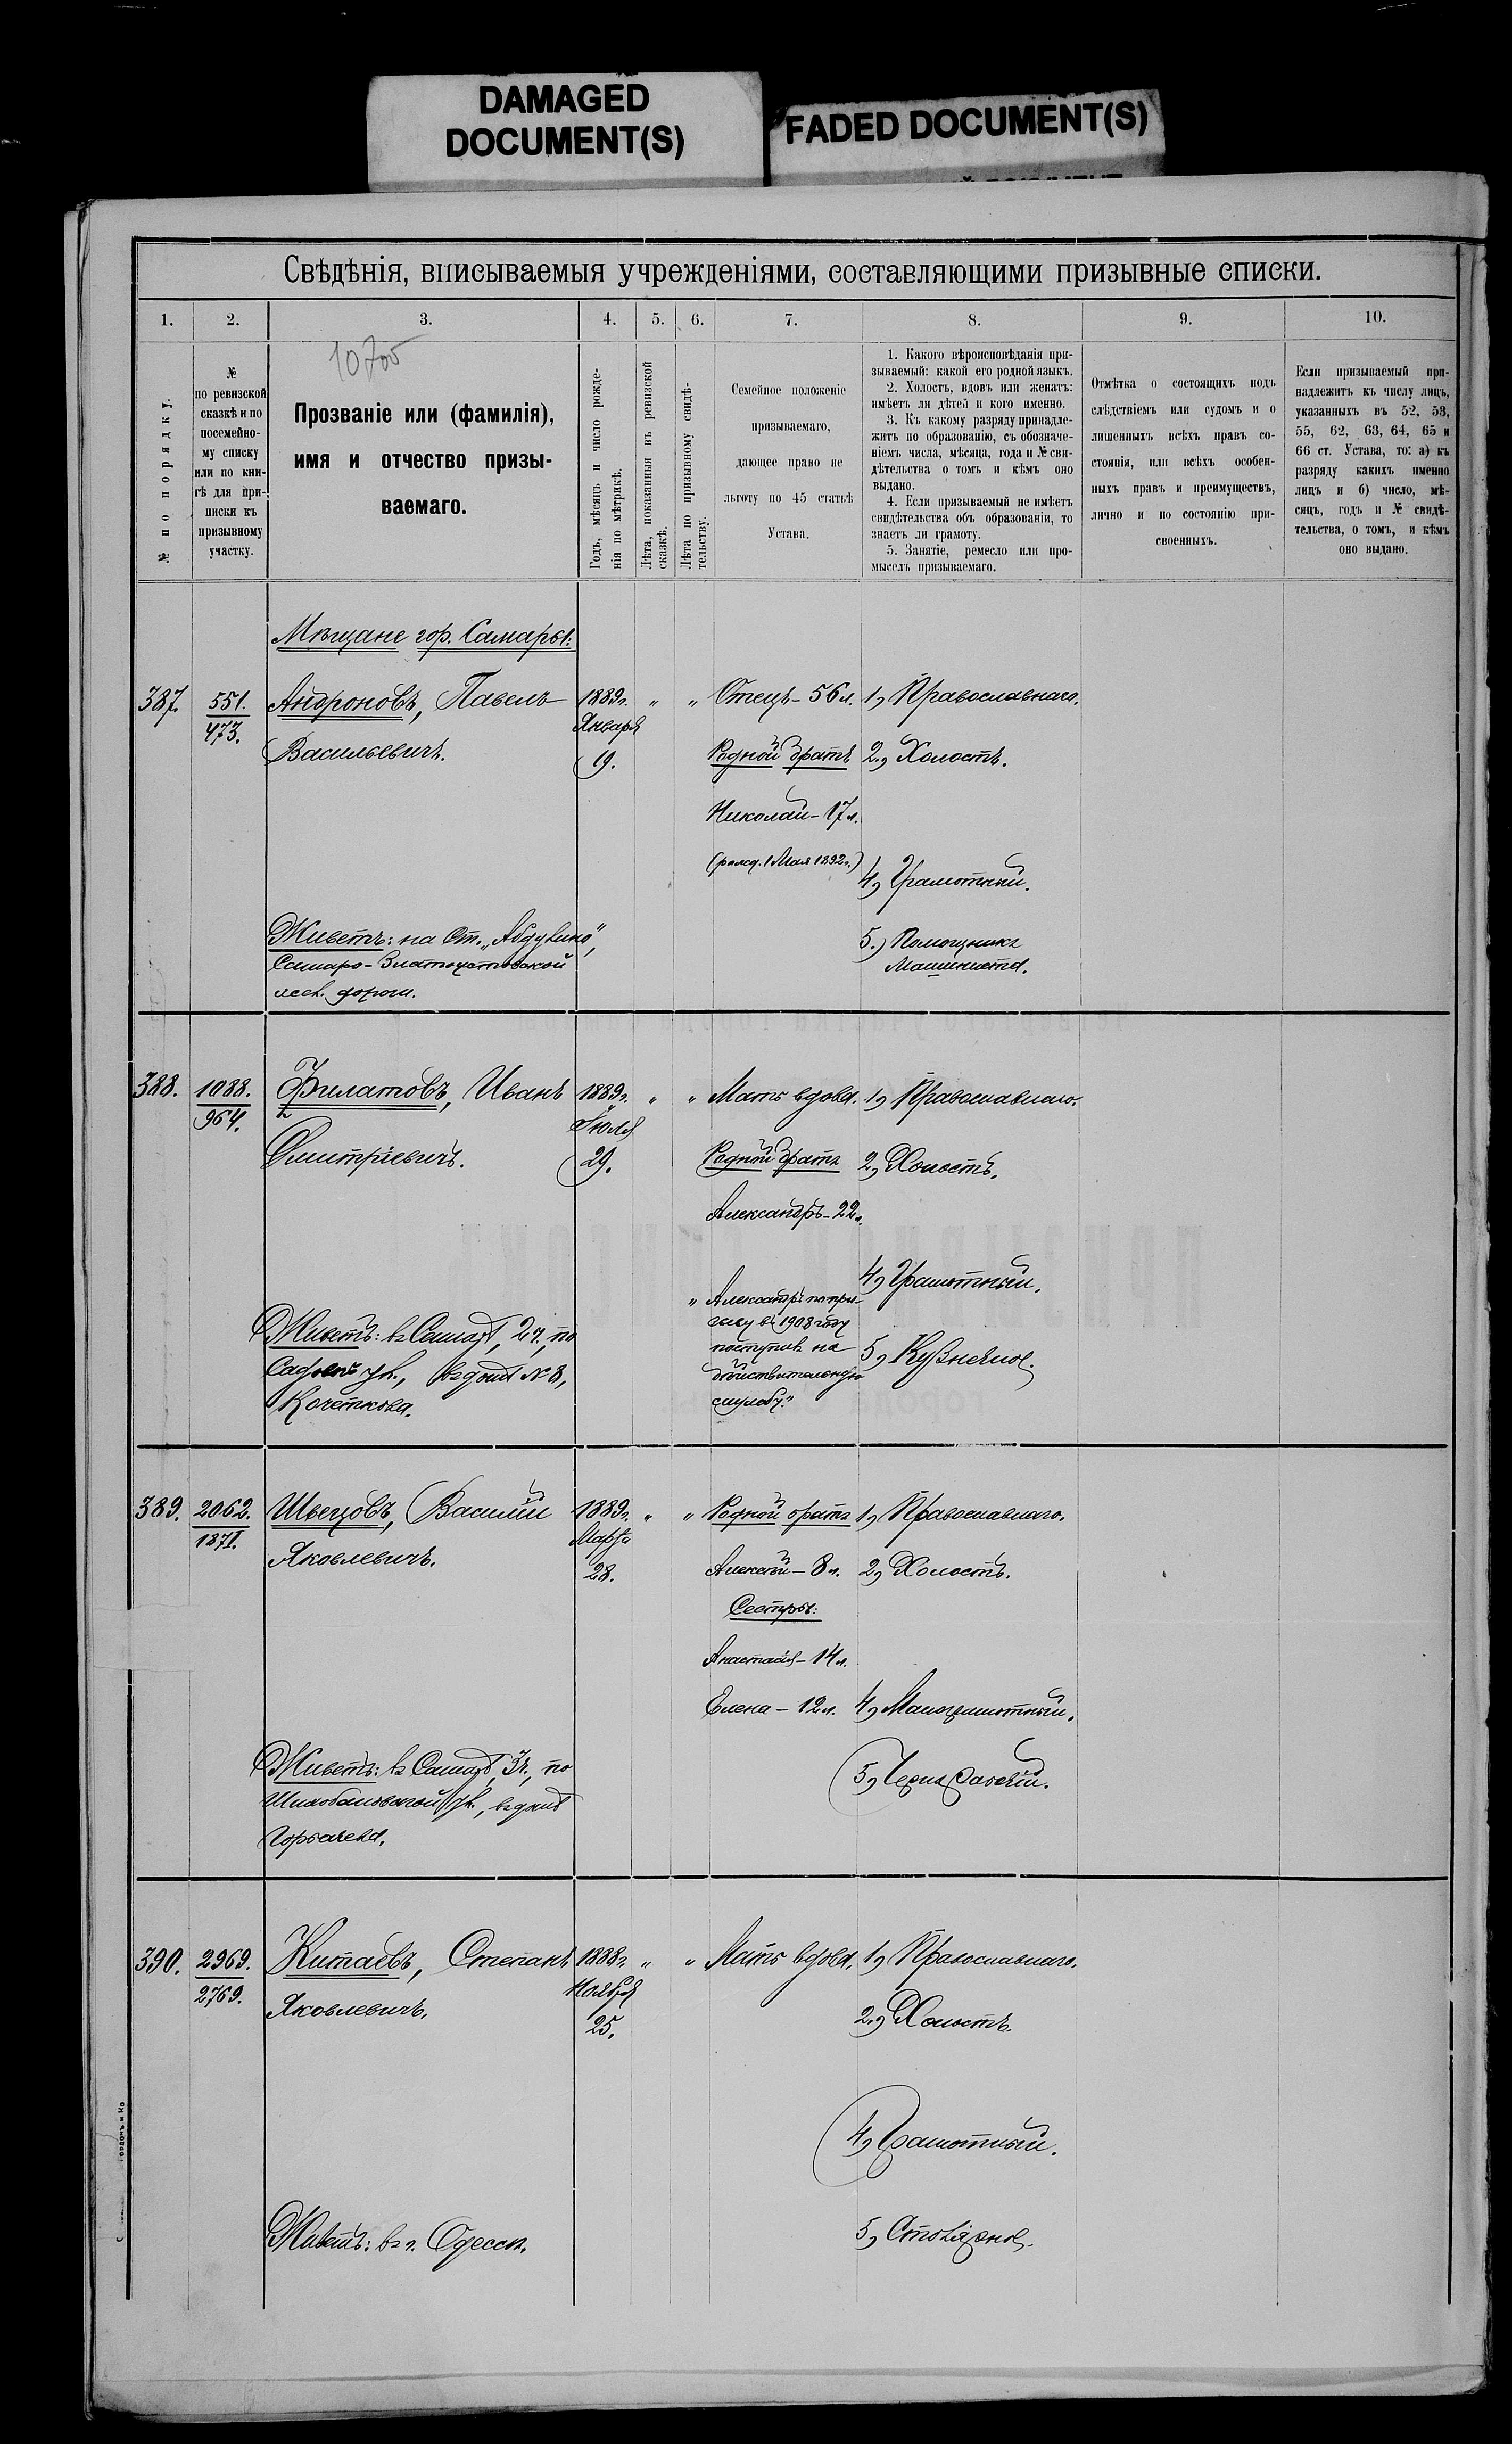 DAMAGED
DOCUMENT(S)
FADED DOCUMENT(S)
Свѣдѣнія, вписываемыя учрежденіями, составляющими призывные списки.
1.
2.
3.
4.
5.
6.
7.
8.
9.
10.
№ по порядку.
№
по ревизской
сказкѣ и по
посемейно-
му списку
или по кни-
гѣ для при-
писки къ
призывному
участку.
10705
Прозваніе или (фамилія),
имя и отчество призы-
ваемаго.
Годъ, мѣсяцъ и число рожде-
нія по мѣтрикѣ.
Лѣта, показанныя въ ревизской
сказкѣ.
Лѣта по призывному свидѣ-
тельству.
Семейное положеніе
призываемаго,
дающее право не
льготу по 45 статьѣ
Устава.
1. Какого вѣроисповѣданія при-
зываемый: какой его родной языкъ.
2. Холостъ, вдовъ или женатъ:
имѣетъ ли дѣтей и кого именно.
3. Къ какому разряду принадле-
житъ по образованію, съ обозначе-
ніемъ числа, мѣсяца, года и № сви-
дѣтельства о томъ и кѣмъ оно
выдано.
4. Если призываемый не имѣетъ
свидѣтельства объ образованіи, то
знаетъ ли грамоту.
5. Занятіе, ремесло или про-
мыселъ призываемаго.
Отмѣтка о состоящихъ подъ
слѣдствіемъ или судомъ и о
лишенныхъ всѣхъ правъ со-
стоянія, или всѣхъ особен-
ныхъ правъ и преимуществъ,
лично и по состоянію при-
своенныхъ.
Если призываемый при-
надлежитъ къ числу лицъ,
указанныхъ въ 52, 53,
55, 62, 63, 64, 65 и
66 ст. Устава, то: а) къ
разряду какихъ именно
лицъ и б) число, мѣ-
сяцъ, годъ и № свидѣ-
тельства, о томъ, и кѣмъ
оно выдано.
Мѣщане гор. Самары:
387.
551.
473.
Андроновъ, Павелъ
Васильевичъ.
1889г.
Января
19.
"
"
Отецъ - 56 л.
Родной братъ
Николай - 17 л.
(рожд. 1 Мая 1892г.)
1, Православнаго.
2, Холостъ.
4, Грамотный.
5.) Помощникъ
Машиниста.
Живетъ: на Ст. "Абдулино",
Самаро-Златоустовской
жел. дороги.
388.
1088.
964.
Филатовъ, Иванъ
Дмитріевичъ.
1889г.
Іюля
29.
"
"
Мать вдова.
Родной братъ
Александръ - 22 л.
"Александръ по при-
зыву въ 1908 году
поступилъ на
дѣйствительную
службу."
1, Православнаго.
2, Холостъ.
4, Грамотный.
5, Кузнечное.
Живетъ: въ Самарѣ, 2 ч., по
Садовой ул., въ домѣ № 8,
Кочеткова.
389.
2062.
1871.
Швецовъ, Василій
Яковлевичъ.
1889г.
Марта
28.
"
"
Родной братъ
Алексѣй - 8 л.
Сестры:
Анастасія - 14 л.
Елена - 12 л.
1, Православнаго.
2, Холостъ.
4, Малограмотный.
5, Чернорабочій.
Живетъ: въ Самарѣ, 3 ч., по
ул., въ домѣ
Горбачева.
390.
2969.
2769.
Китаевъ, Степанъ
Яковлевичъ.
1888г.
Ноября
25.
"
"
Мать вдова.
1, Православнаго.
2, Холостъ.
4, Грамотный.
5, Столярное.
Живетъ: въ г. Одессѣ.